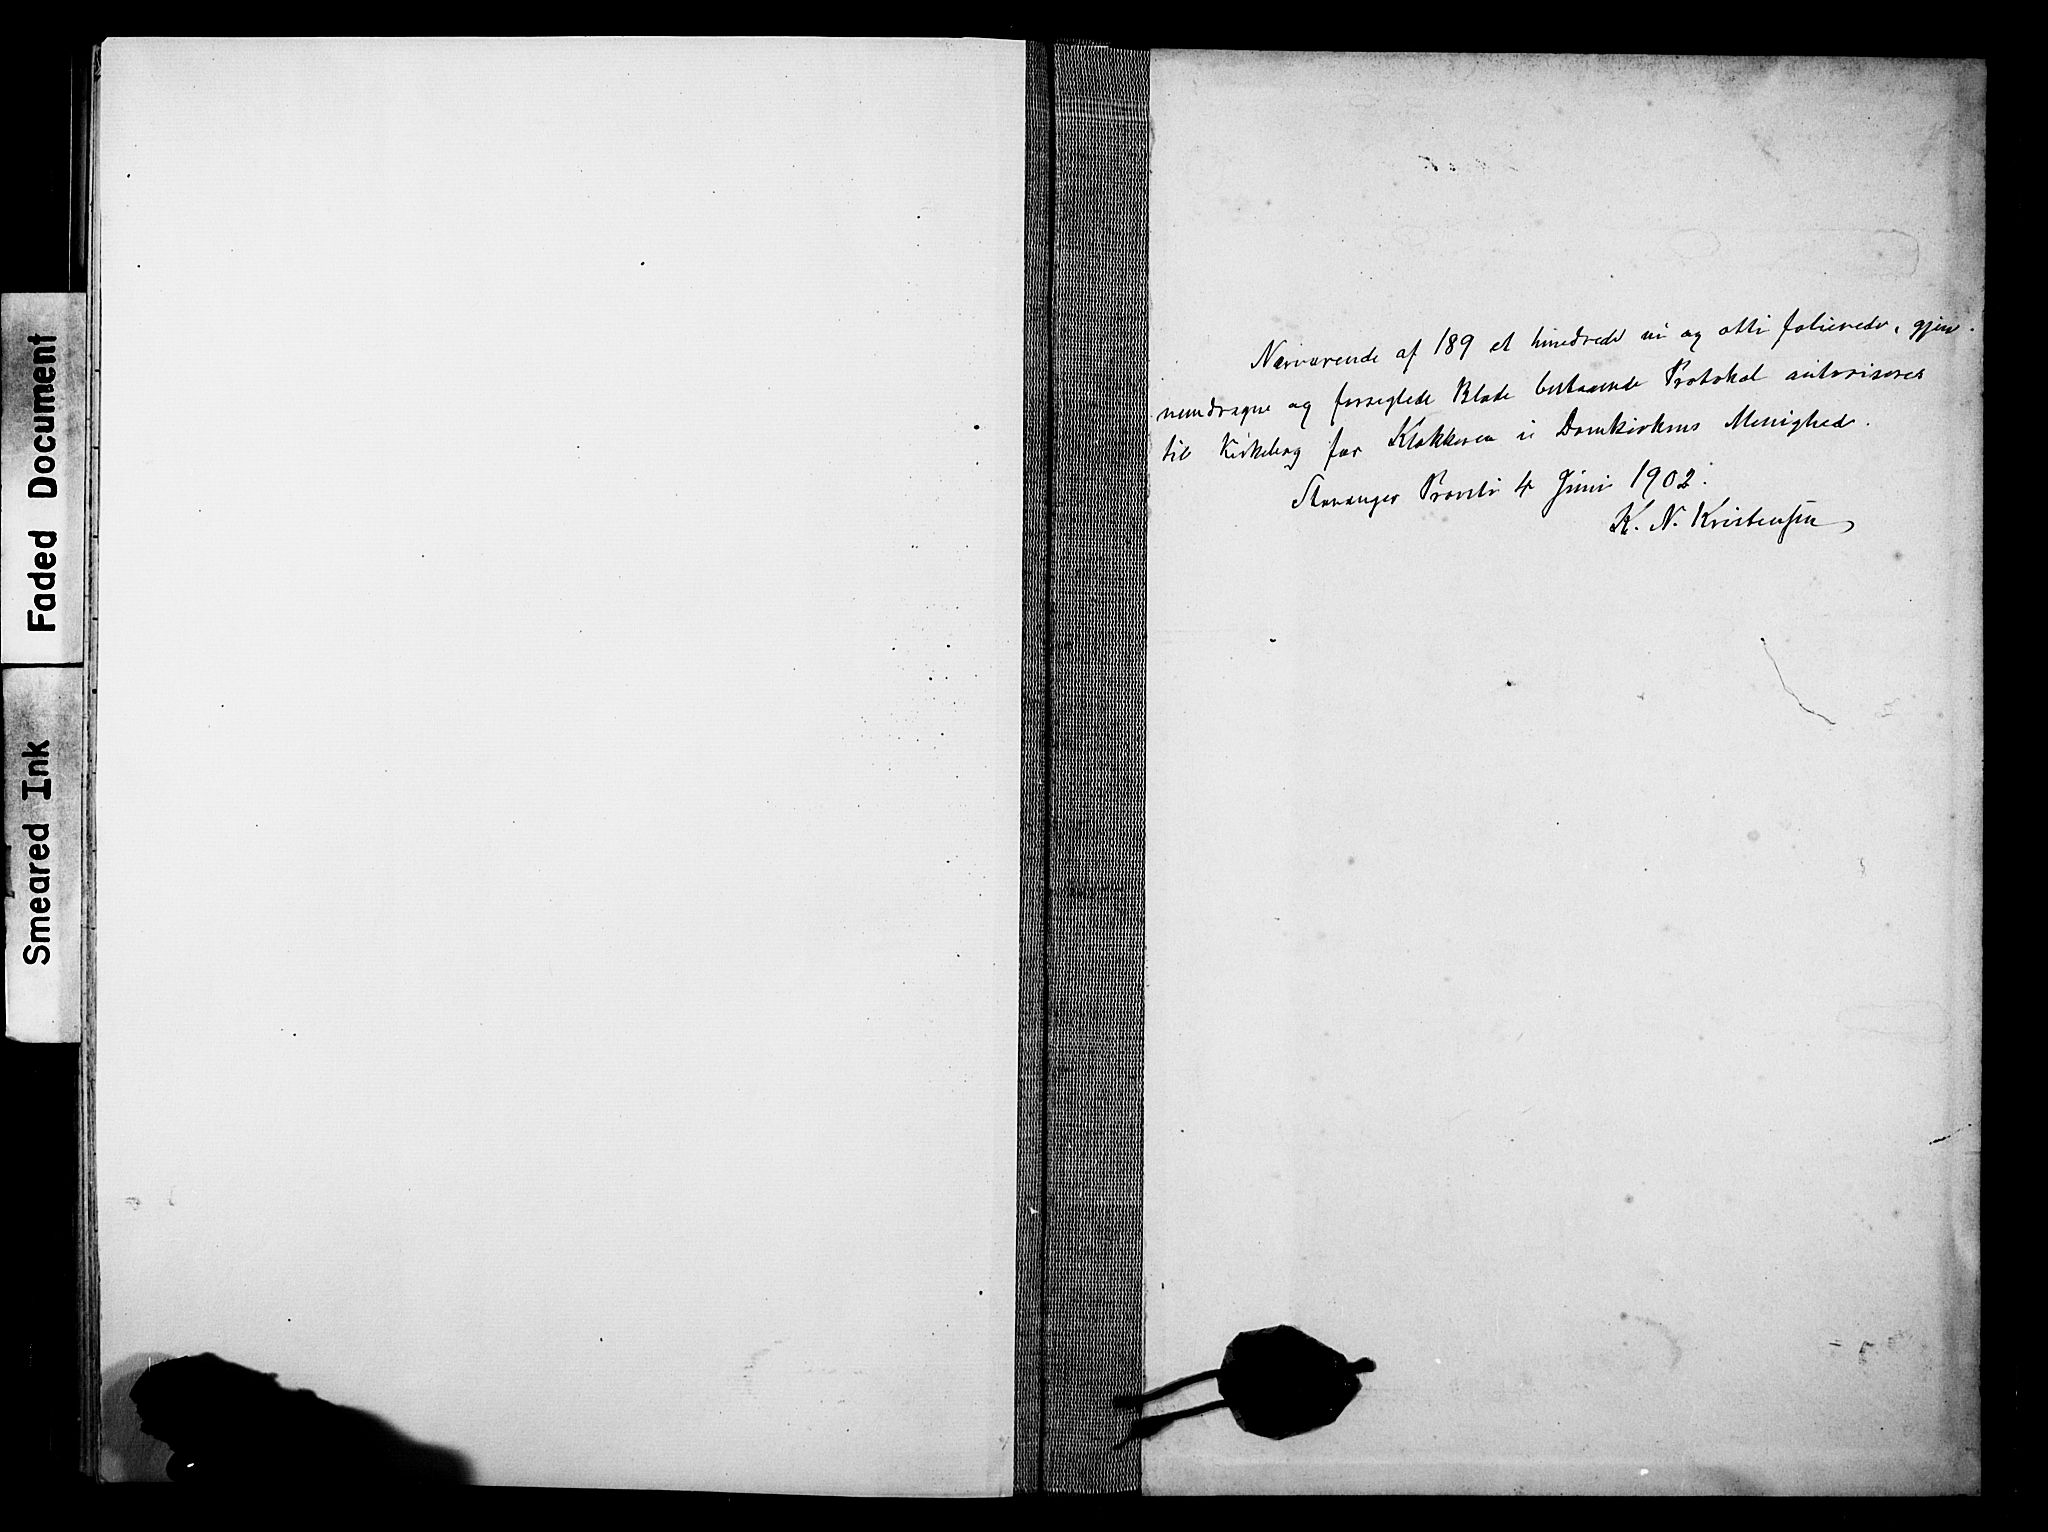 Faded Document
Smeared Ink
Nærværende af 189 et hundrede ni og otti folierede, gjen-
nemdragne og forseglede Blade bestaaende Protokol autoriseres
til Kirkebog for Klokkeren i Domkirkens Menighed.
Stavanger Provsti 4 Juni 1902.
K. N. Kristensen